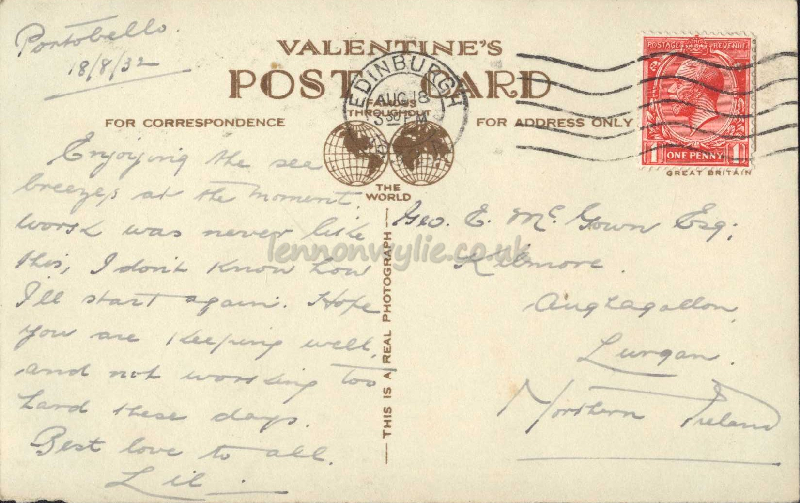 Portobello.
18/8/32
VALENTINE'S
POST CARD
EDINBURGH
AUG 18
FAMOUS
THROUGHOUT
FOR CORRESPONDENCE
FOR ADDRESS ONLY
THE
WORLD
POSTAGE REVENUE
1 ONE PENNY 1
GREAT BRITAIN
Enjoying the sea
breezes at the moment.
Work was never like
this, I don't know how
I'll start again. Hope
you are keeping well,
and not working too
hard these days.
Best love to all.
Lil
THIS IS A REAL PHOTOGRAPH
Geo. E. McGown Esq;
Kilmore.
Aughagallon,
Lurgan.
Northern Ireland
lennonwylie.co.uk